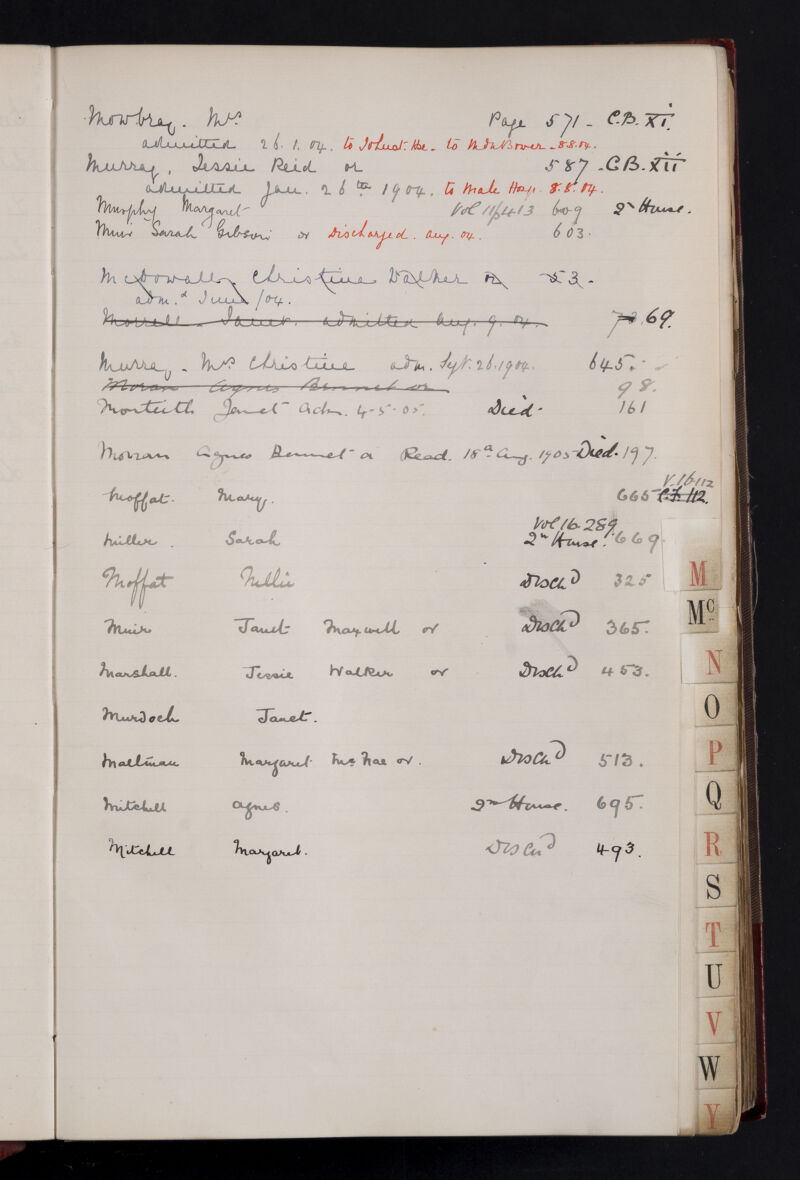 Mowbray. Mrs Page 571 - C.B. XI.
admitted 26.1.04. to Johnst. Hse. - to - 8.8.04.
Murray, Jessie Reid or 587 - C.B. XII
admitted Jan. 26th 1904. to Male Hosp. 8.8.04.
Murphy Margaret Vol 11/p413 609 2nd House.
Muir Sarah Gibson or Discharged. Aug. 04. 603.
McDowall. Christine Walker or 53.
adm.d June /04.
Morrell. Janet. admitted Aug. 9. 04. 69.
Murray - Mrs Christine adm. Sept. 26. 1904. 645.
Moran Agnes Bennet or 98.
Monteith Janet Adm. 4-5-05. Died. 161
Morran Agnes Bennet or Read. 18th Aug. 1905 Died. 197.
V. 16 112
Moffat. Mary. 665 C.F. 112.
Vol 16. 289
Miller. Sarah 2nd House. 669
Moffat Nellie Dischd 325
Muir Janet Maxwell or Dischd 365.
Marshall. Jessie Walker or Dischd 453.
Murdoch Janet.
Maltman Margaret McNae or. Dischd 513.
Mitchell Agnes. 2nd House. 695.
Mitchell Margaret. Dischd 493.
M
Mc
N
O
P
Q
R
S
T
U
V
W
Y